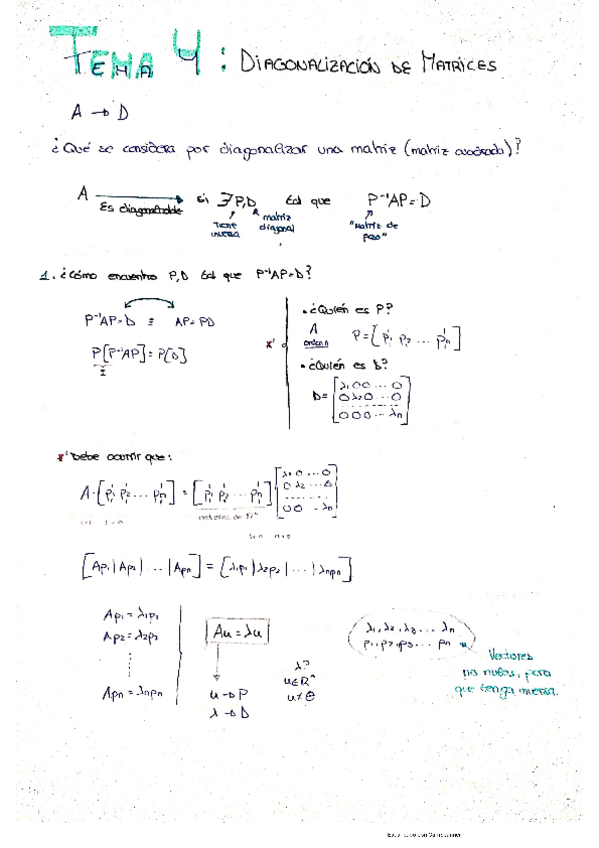 TEMA 4: DIAGONALIZACIÓN DE MATRICES
A → D
¿Qué se considera por diagonalizar una matriz (matriz cuadrada)?
A → Es diagonalizable Si ∃ P,D tal que P⁻¹AP=D
Tiene inversa
matriz diagonal
"Matriz de paso"
1. ¿Cómo encuentro P,D tal que P⁻¹AP=D?
P⁻¹AP=D ≡ AP=PD
P[P⁻¹AP]=P[D]
I
x'
• ¿Quién es P?
A orden n P=[p₁ p₂ ... pₙ]
• ¿Quién es D?
D=[λ₁ 0 0 ... 0
0 λ₂ 0 ... 0
0 0 0 ... λₙ]
x' Debe ocurrir que:
A·[p₁ p₂ ... pₙ] = [p₁ p₂ ... pₙ] [λ₁ 0 ... 0
0 λ₂ ... 0
0 0 ... λₙ]
[Ap₁|Ap₂| ... |Apₙ] = [λ₁p₁|λ₂p₂| ... |λₙpₙ]
Ap₁=λ₁p₁
Ap₂=λ₂p₂
Apₙ=λₙpₙ
Au=λu
u→P
λ→D
λ?
u∈Rⁿ
u≠Θ
λ₁,λ₂,λ₃...λₙ
p₁,p₂,p₃...pₙ
Vectores
no nulos, para
que tenga inversa.